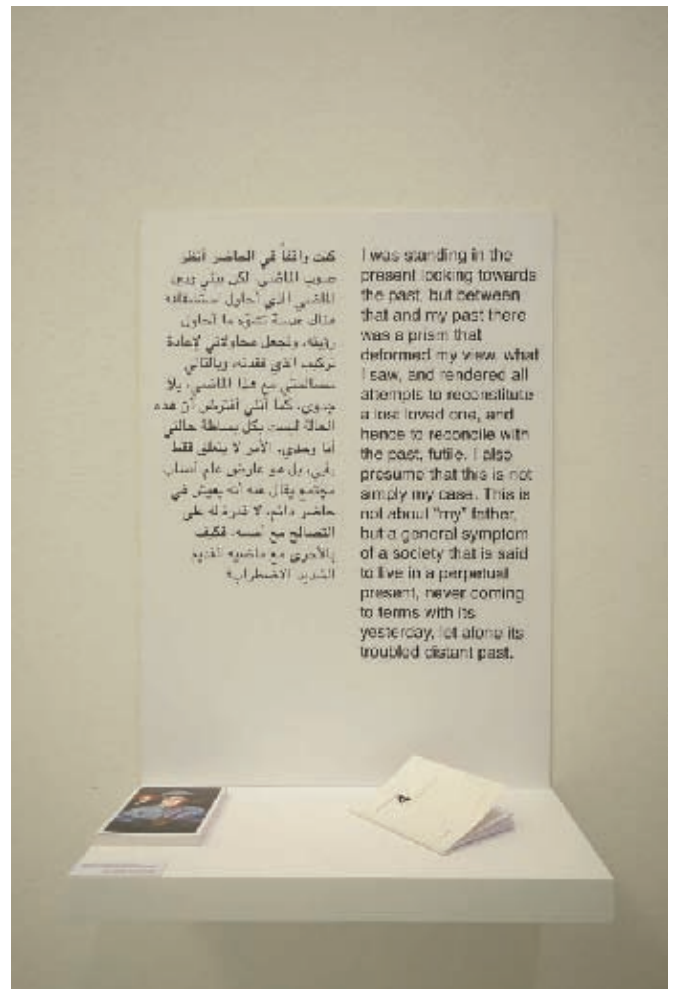 كنت واقفاً في الحاضر أنظر
صوب الماضي. لكن بيني وبين
الماضي الذي أحاول استنقاذه
هناك عدسة تشوّه ما أحاول
رؤيته، وتجعل محاولاتي لإعادة
تركيب الذي فقدته، وبالتالي
مصالحتي مع هذا الماضي، بلا
جدوى. كما أنني أفترض أن هذه
الحالة ليست بكل بساطة حالتي
أنا وحدي. الأمر لا يتعلق فقط
بأبي، بل هو عارض عام أصاب
مجتمع يقال عنه أنه يعيش في
حاضر دائم، لا قدرة له على
التصالح مع أمسه، فكيف
بالأحرى مع ماضيه القديم
الشديد الاضطراب؟
I was standing in the
present looking towards
the past, but between
that and my past there
was a prism that
deformed my view, what
I saw, and rendered all
attempts to reconstitute
a lost loved one, and
hence to reconcile with
the past, futile. I also
presume that this is not
simply my case. This is
not about "my" father,
but a general symptom
of a society that is said
to live in a perpetual
present, never coming
to terms with its
yesterday, let alone its
troubled distant past.